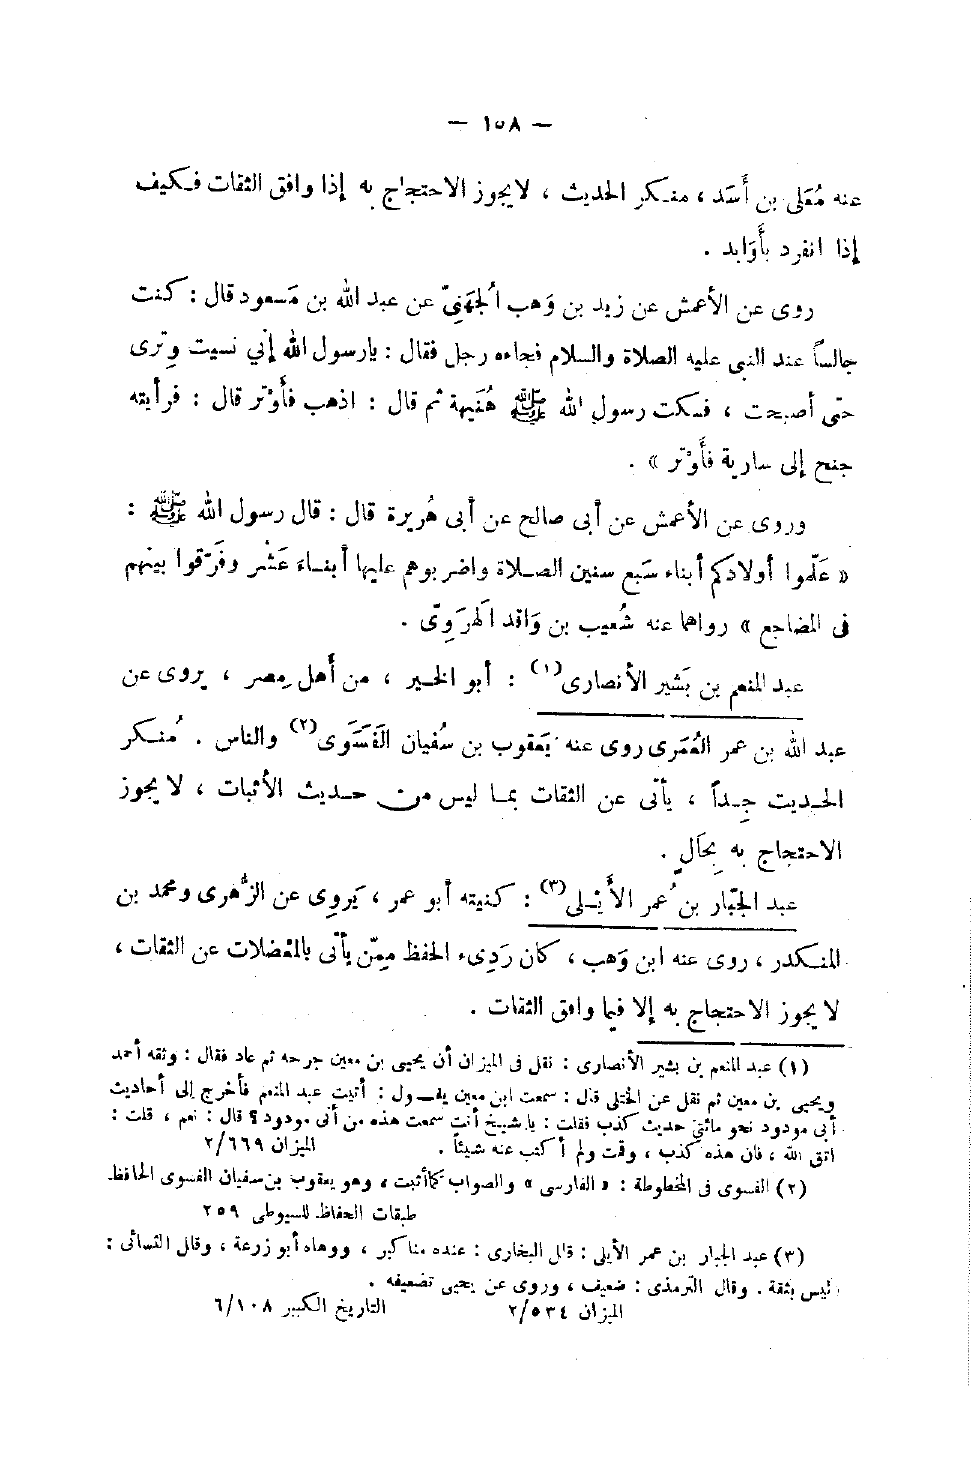 — ١٥٨ —
عنه مُعَلى بن أَسَد ، منكر الحديث ، لا يجوز الاحتجاج به إذا وافق الثقات فكيف
إذا انفرد بأَوَابد .
روى عن الأعمش عن زيد بن وَهب الْجُهَنِيّ عن عبد الله بن مَسعود قال : كنت
جالساً عند النبى عليه الصلاة والسلام فجاءه رجل فقال : يارسول الله إنّي نسيت وِترى
حتّى أصبحت ، فسكت رسول الله ﷺ هُنَيهة ثم قال : اذهب فأَوْتر قال : فرأيته
جنح إلى سارية فأَوْتر » .
وروى عن الأعمش عن أبى صالح عن أبى هُريرة قال : قال رسول الله ﷺ :
« عَلّموا أولادكم أبناء سَبع سنين الصلاة واضربوهم عليها أبناء عَشْر وفَرّقوا بينهم
فى المضاجع » رواهما عنه شُعيب بن وَاقد الْهَرَوِىّ .
عبد المنعم بن بَشير الأنصارى(١) : أبو الخير ، من أَهل مِصر ، يروى عن
عبد الله بن عمر العُمَرى روى عنه يَعقوب بن سُفيان الفَسَوى(٢) والناس . مُنكر
الحديث جِداً ، يأتى عن الثقات بما ليس من حديث الأثبات ، لا يجوز
الاحتجاج به بِحَالٍ .
عبد الجبّار بن عُمر الأَيْلى(٣) : كنيته أبو عمر ، يَروِى عن الزُّهرى ومحمد بن
المنكدر ، روى عنه ابن وَهب ، كان رَدِىء الحفظ مِمّن يأتى بالمُعضلات عن الثقات ،
لا يجوز الاحتجاج به إلا فيما وافق الثقات .
(١) عبد المنعم بن بشير الأنصارى : نقل فى الميزان أن يحيى بن معين جرحه ثم عاد فقال : وثقه أحمد
ويحيى بن معين ثم نقل عن الختلى قال : سمعت ابن معين يقول : أتيت عبد المنعم فأخرج إلى أحاديث
أبى مودود نحو مائتى حديث كذب فقلت : يا شيخ أنت سمعت هذه من أبى مودود ؟ قال : نعم ، قلت :
اتق الله ، فان هذه كذب ، وقمت ولم أكتب عنه شيئاً . الميزان ٢/٦٦٩
(٢) الفسوى فى المخطوطة : « الفارسى » والصواب كما أثبت ، وهو يعقوب بن سفيان الفسوى الحافظ
طبقات الحفاظ للسيوطى ٢٥٩
(٣) عبد الجبار بن عمر الأيلى : قال البخارى : عنده مناكير ، ووهاه أبو زرعة ، وقال النسائى :
ليس بثقة . وقال الترمذى : ضعيف ، وروى عن يحيى تضعيفه .
الميزان ٢/٥٣٤ التاريخ الكبير ٦/١٠٨